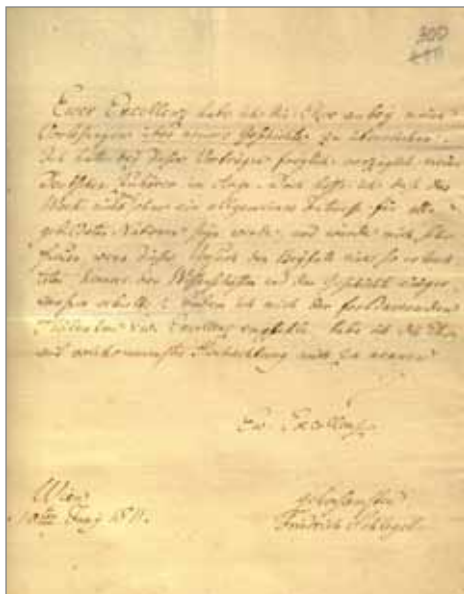 300
Ewer Excellenz habe ich die Ehre anbey meine
Vorlesungen über neuere Geschichte zu überreichen.
Ich hatte bey diesen Vorträgen freylich vorzüglich meine
Deutschen Zuhörer im Auge. Doch hoffe ich daß das
Werk nicht ohne ein allgemeines für alle
gebildeten Nationen seyn werde, und würde mich sehr
freuen wenn dieses den Beyfall eines so
Kenners der Wissenschaften und der Geschichte
erhielte. Indem ich mich der fortdauernden
Ew. Excellenz empfehle, habe ich die Ehre
mit vollkommenster Hochachtung mich zu nennen
Ew. Excellenz
Wien
10ten Juny 1811.
gehorsamster
Friedrich Schlegel